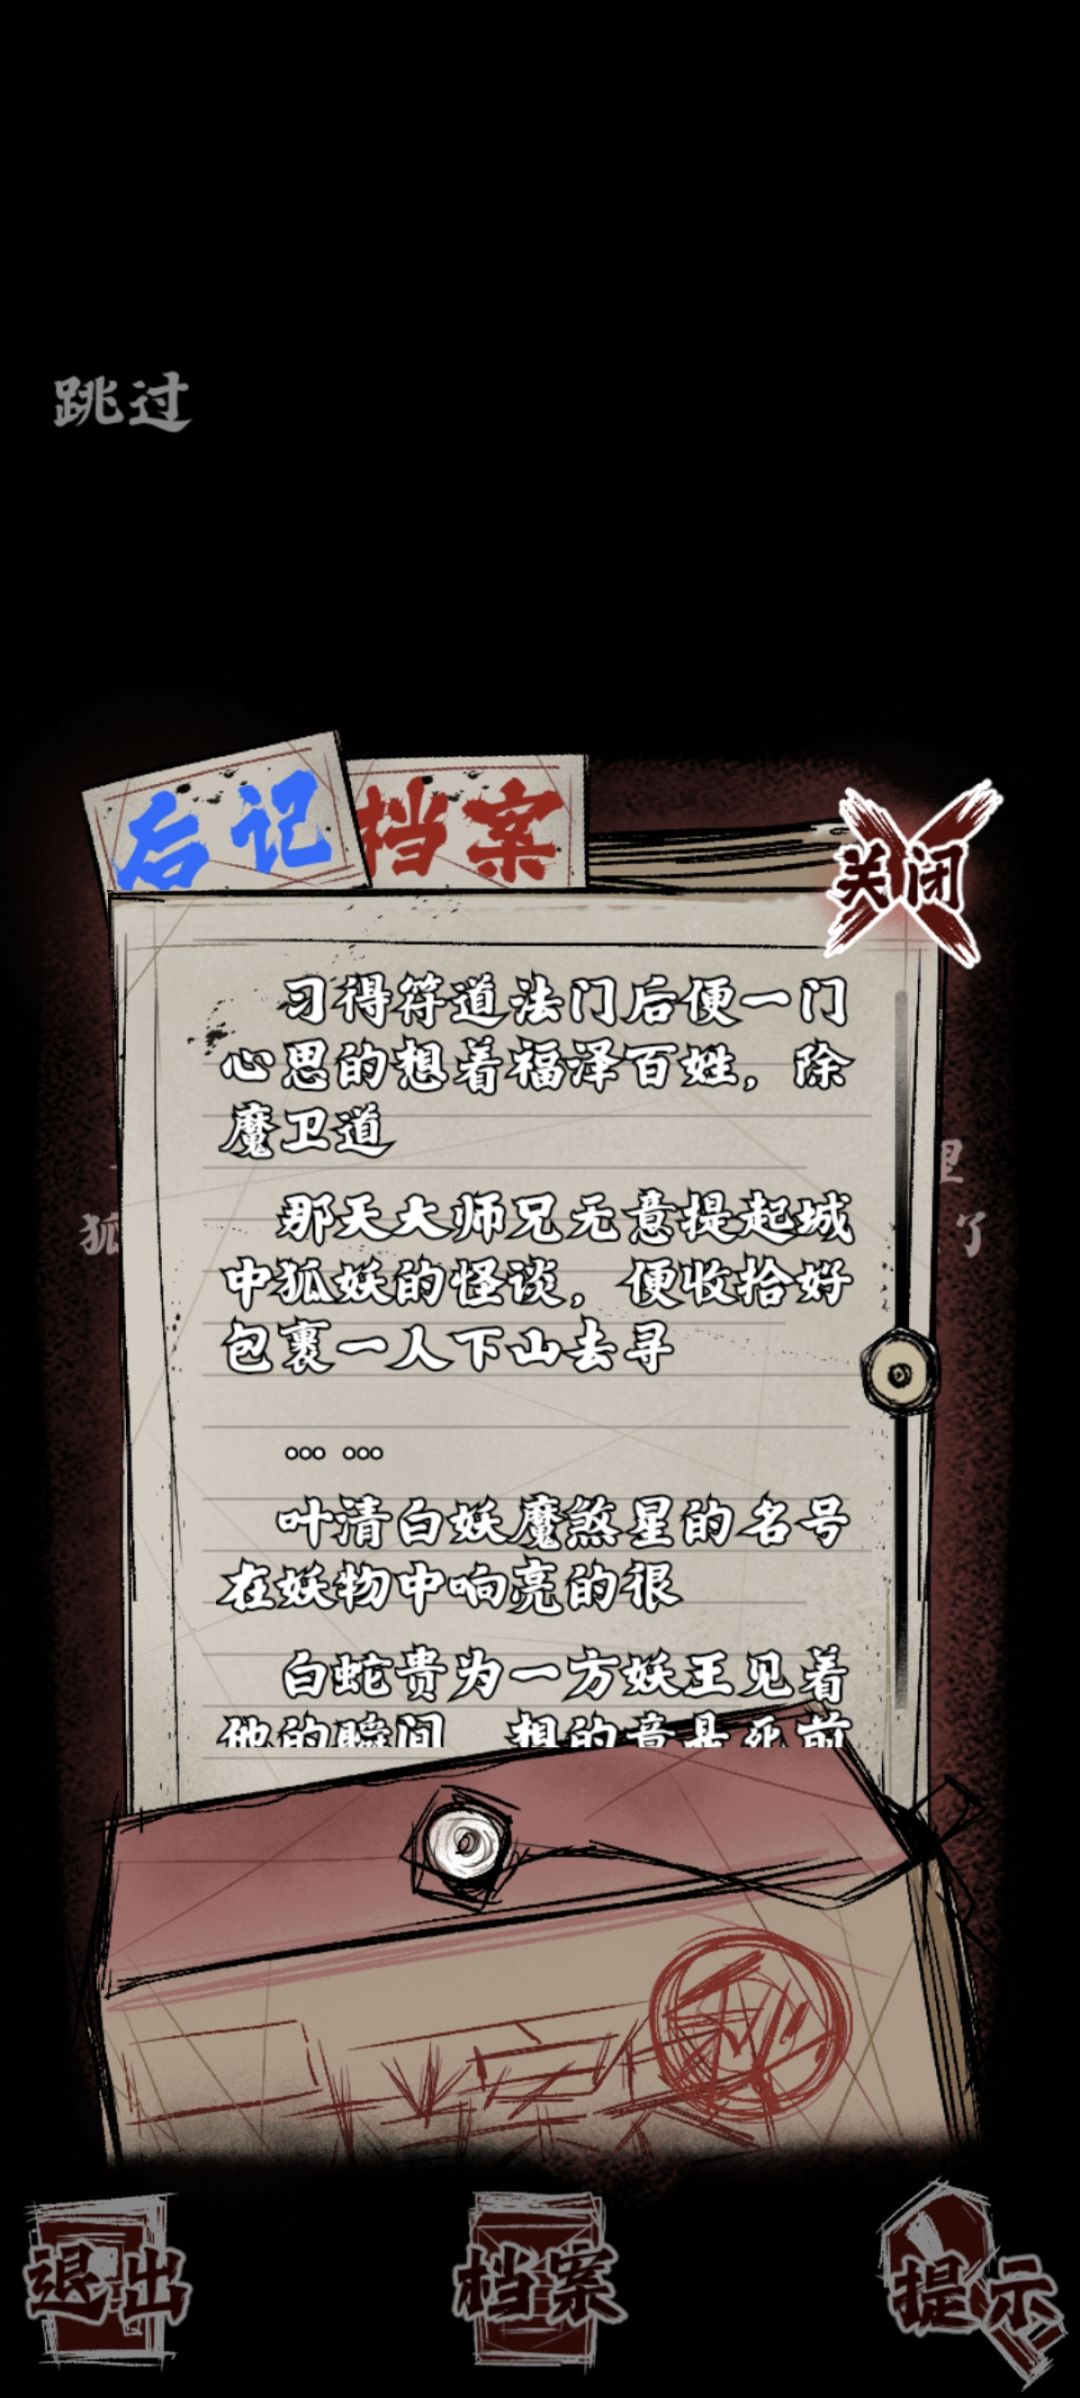 跳过
后记
档案
关闭
习得符道法门后便一门
心思的想着福泽百姓，除
魔卫道
那天大师兄无意提起城
中狐妖的怪谈，便收拾好
包裹一人下山去寻
… …
叶清白妖魔煞星的名号
在妖物中响亮的很
白蛇贵为一方妖王见着
他的瞬间 想的竟是死前
狐
了
退出
档案
提示